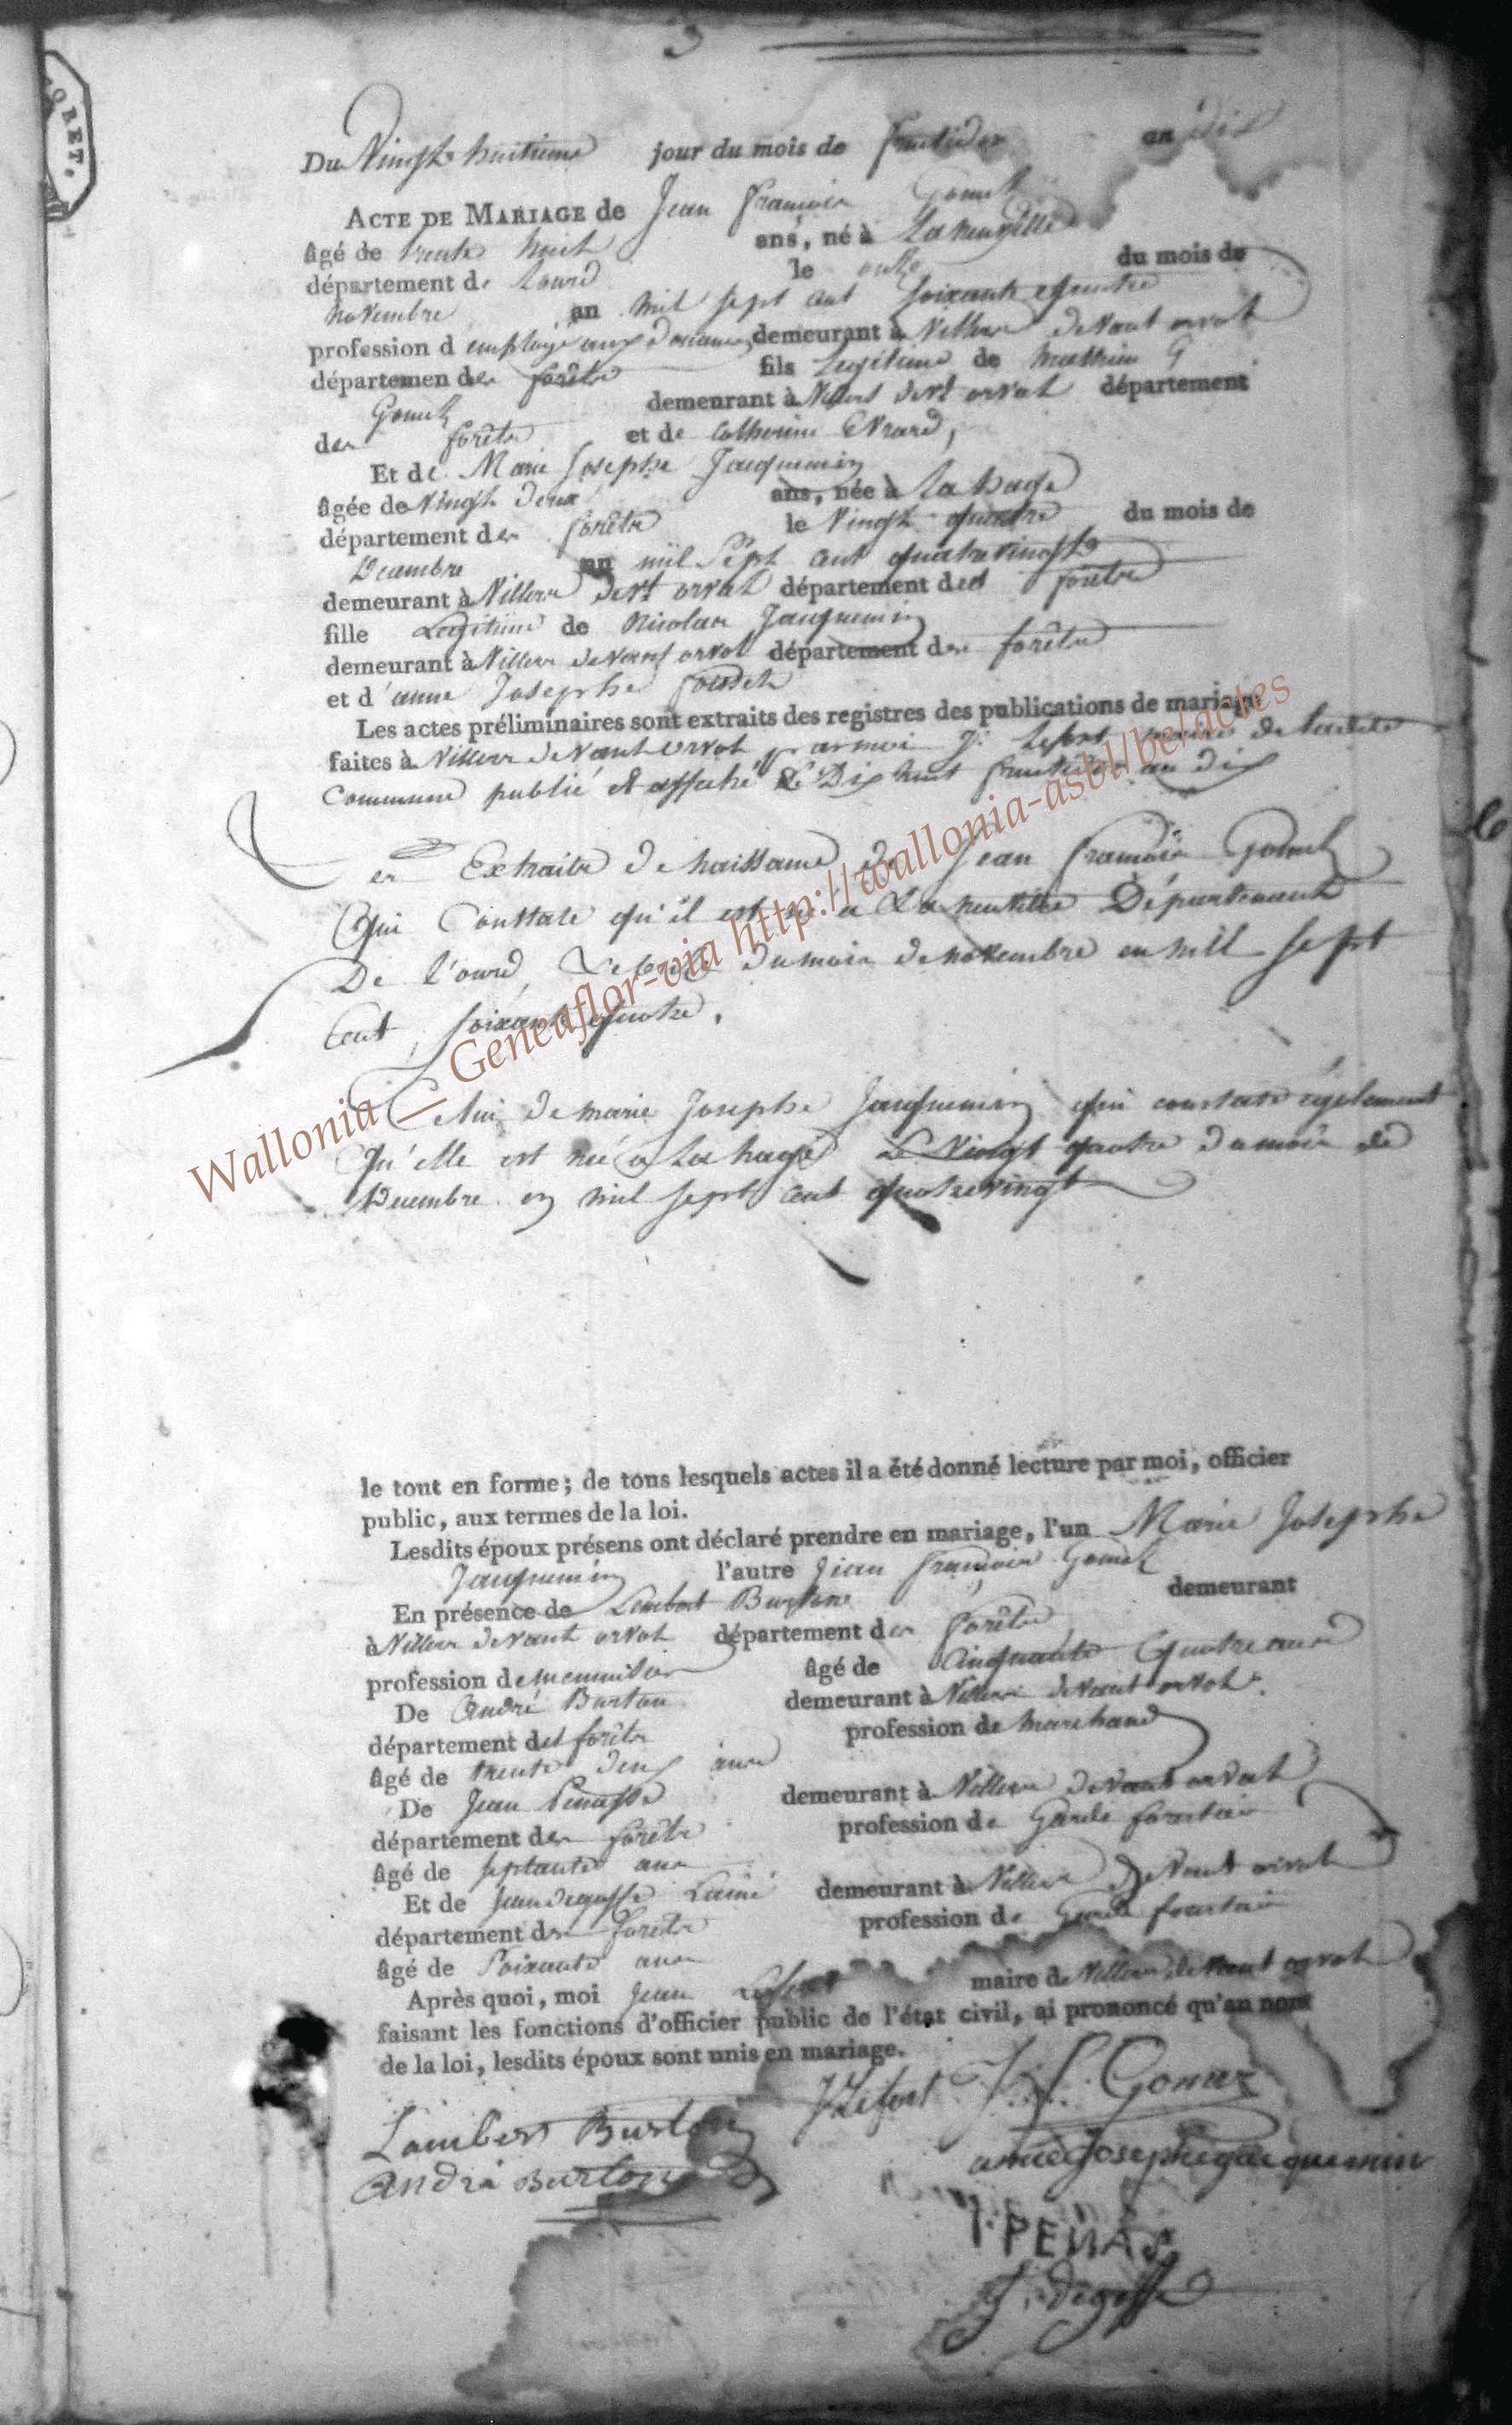 Du Vingt huitieme jour du mois de fructidor an dix
ACTE DE MARIAGE de Jean François Gomez
âgé de trente huit ans, né à La neuville
département de Lourd le onze du mois de
novembre an mil sept cent soixante quatre
profession d employé aux douanes demeurant à Villers devant orval
départemen des forêts fils Legitime de Mathieu G
Gomez demeurant à Villers devt orval département
des forêts et de Catherine Evrard,
Et de Marie Josephe Jacquemin
âgée de Vingt deux ans, née à La hage
département des forêts le Vingt quatre du mois de
Decembre an mil Sept cent quatrevingt
demeurant à Villers devt orval département des forêts
fille Legitime de Nicolas Jacquemin
demeurant à Villers devant orval département des forêts
et d'anne Josephe
Les actes préliminaires sont extraits des registres des publications de mariage
faites à Villers devant orval par moi J. Lefort maire de ladite
Commune publié et affiché Le Dix huit fructidor an dix
es Extraits de naissance de Jean François Gomez
Qui Constate qu'il est né a La neuville Département
De l'ourd, Le onze du mois de novembre en mill sept
Cent soixante quatre.
Celui de marie Josephe Jacquemin qui constate également
Qu'elle est née a La hage Le Vingt quatre du mois de
Decembre en mil sept cent quatrevingt
le tout en forme; de tous lesquels actes il a été donné lecture par moi, officier
public, aux termes de la loi.
Lesdits époux présens ont déclaré prendre en mariage, l'un Marie Josephe
Jacquemin l'autre Jean François Gomez
En présence de Lambert Burton demeurant
à Villers devant orval département des Forêts
profession de menuisier âgé de Cinquante Quatre ans
De André Burton demeurant à Villers devant orval
département des forêts profession de marchand
âgé de trente deux ans
De Jean Penasse demeurant à Villers devant orval
département des forêts profession de Garde forestier
âgé de septante ans
Et de Jean degoffe Lainé demeurant à Villers Devant orval
département des forêts profession de Garde forestier
âgé de Soixante ans
Après quoi, moi Jean Lefort maire de Villers devant orval
faisant les fonctions d'officier public de l'état civil, ai prononcé qu'au nom
de la loi, lesdits époux sont unis en mariage.
JLefort J. f. Gomez
Lambert Burton
André Burton
Josephe jacquemin
I. PENAS
J. degoffe
Wallonia __ Geneaflor-via http://wallonia-asbl/be/actes